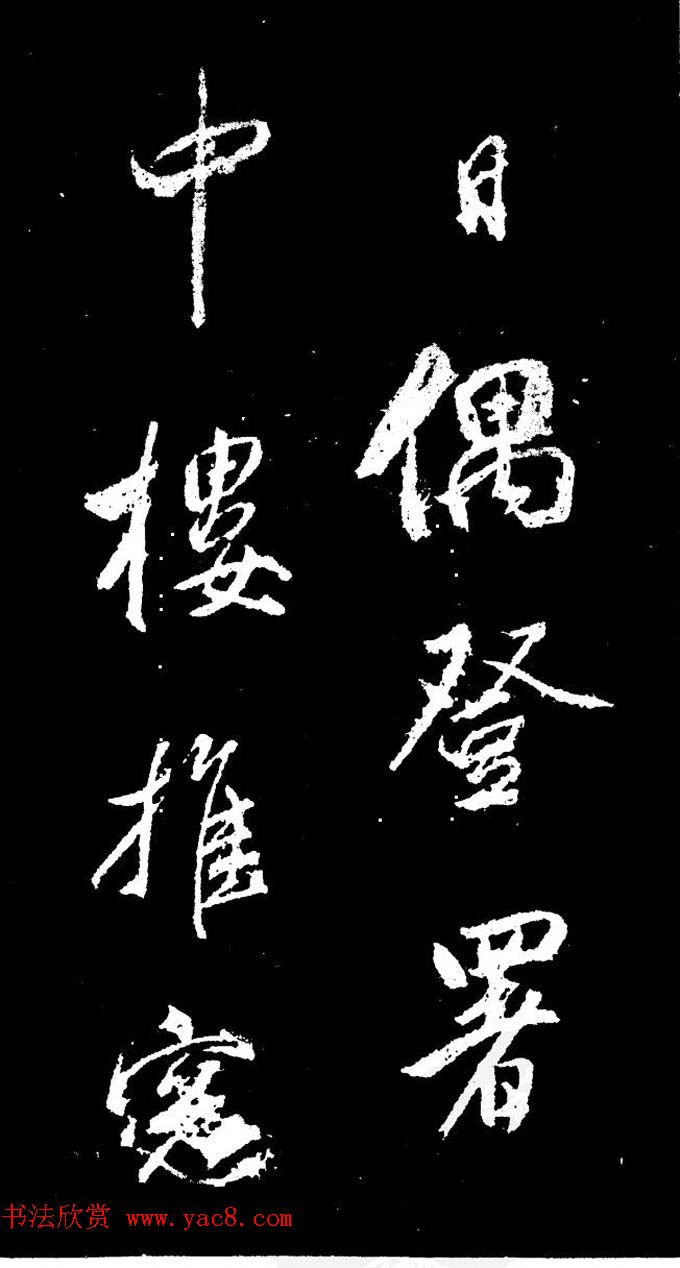 日偶登署
中樓推窻
书法欣赏 www.yac8.com